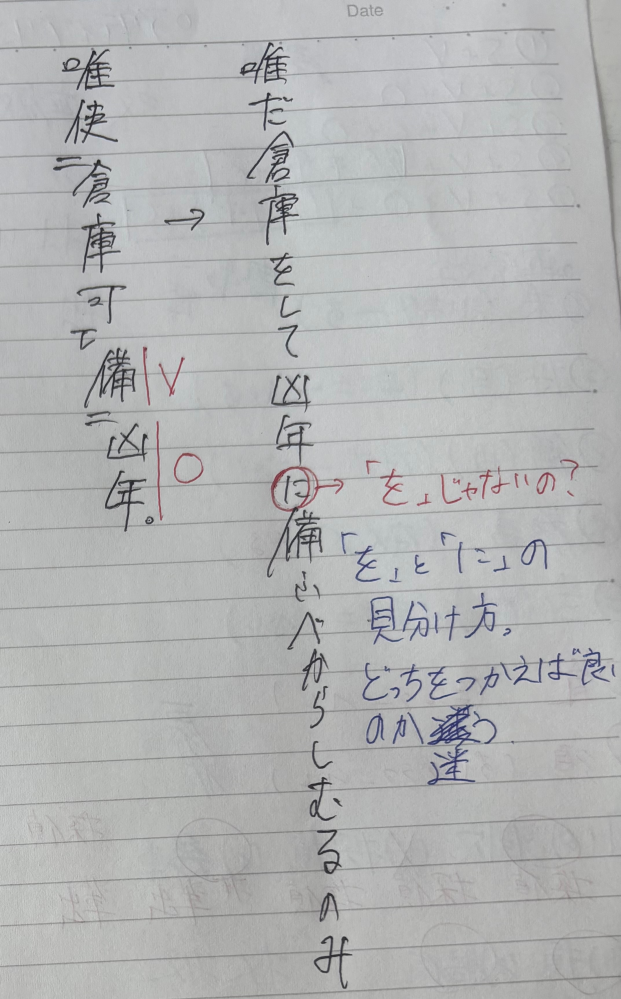 Date
唯だ倉庫をして凶年に備ふべからしむるのみ
→「を」じゃないの?
「を」と「に」の
見分け方。
どっちをつかえば良い
のか迷う
→
唯使=倉庫可テ備=凶年。
V
O